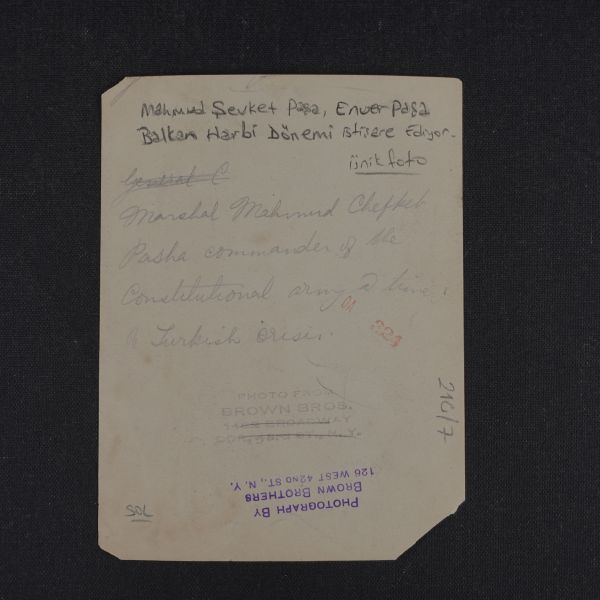 Mahmud Şevket Paşa, Enver Paşa
Balkan Harbi Dönemi istişare Ediyor.
ünik foto
General C
Marshal Mahmud Chefket
Pasha commander of the
Constitutional army a time
Turkish Crisis.
PHOTO FROM
BROWN BROS.
BROADWAY
N.Y.
210/7
PHOTOGRAPH BY
BROWN BROTHERS
126 WEST 42ND ST., N. Y.
SOL